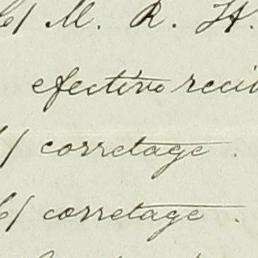 6/ M. R. H.
efective reci
/ corretage.
6/ corretage.